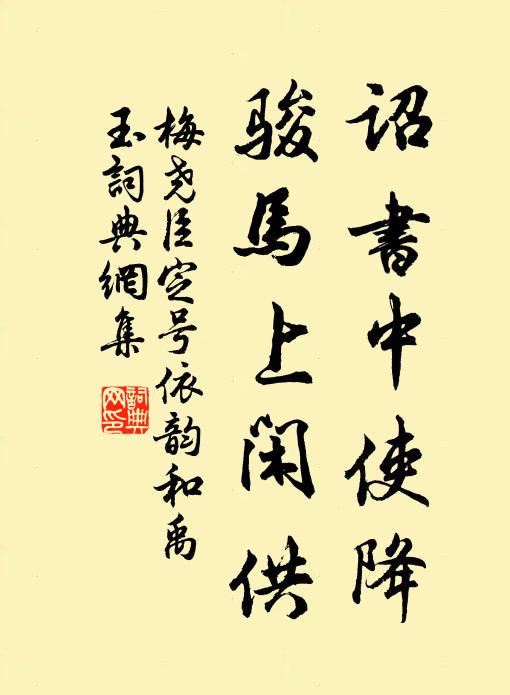 詔書中使降
骏馬上闲供
梅尧臣定号依韵和禹
玉詞典網集
詞典
网印